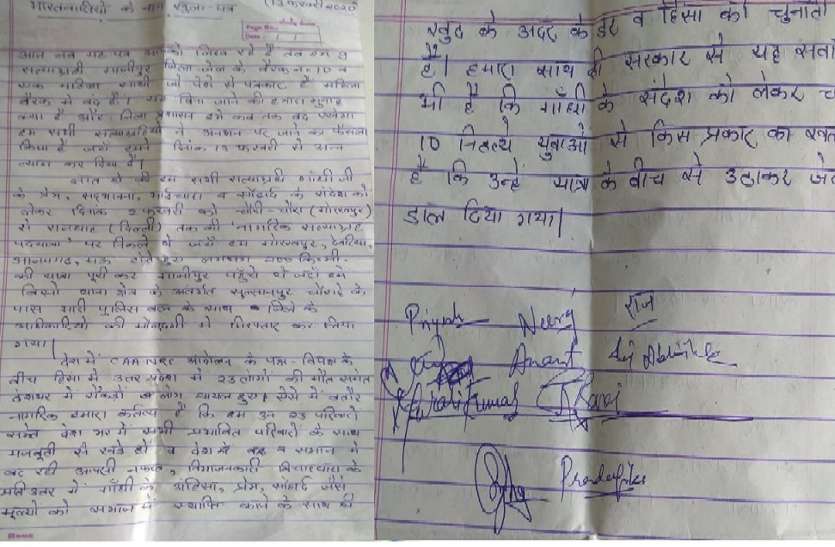 भारतवासियों के नाम खुला-पत्र
आज जब यह पत्र आपको लिख रहे हैं तब हम 9
सत्याग्रही गाजीपुर जिला जेल के बैरक न. 10 व
एक महिला साथी जो पेशे से पत्रकार हैं महिला
बैरक में बंद हैं।
क्या है और जिला प्रशासन हमें कब तक बंद रखेगा
हम सभी सत्याग्रहियों ने अनशन पर जाने का फैसला
किया है जहाँ हमने दिनांक 13 फरवरी से अन्न
त्याग कर दिया है।
ज्ञात हो की हम सभी सत्याग्रही गांधी जी
के प्रेम, सद्भावना, भाईचारा व सौहार्द के संदेश को
लेकर दिनांक 2 फरवरी को चौरी-चौरा (गोरखपुर)
से राजघाट (दिल्ली) तक की 'नागरिक सत्याग्रह
पदयात्रा' पर निकले थे जहाँ हम गोरखपुर, देवरिया,
आजमगढ़, मऊ होते हुए लगभग 200 कि.मी.
की यात्रा पूरी कर गाजीपुर पहुँचे थे जहाँ हमें
बिरनो थाना क्षेत्र के अन्तर्गत सुल्तानपुर चौराहे के
पास भारी पुलिस बल के साथ जिले के
अधिकारियों की मौजूदगी में गिरफ्तार कर लिया
गया।
देश में CAA/NRC आंदोलन के पक्ष-विपक्ष के
बीच हिंसा में उत्तर प्रदेश में 23 लोगों की मौत समेत
देशभर में सैकड़ों लोग घायल हुए। ऐसे में बतौर
नागरिक हमारा कर्तव्य है कि हम उन 23 परिवारों
समेत देश भर में सभी प्रभावित परिवारों के साथ
मजबूती से खड़े हों व देश में व समाज में
बढ़ रही आपसी नफरत, विभाजनकारी विचारधारा के
प्रति उत्तर में गाँधी के अहिंसा, प्रेम, सौहार्द जैसे
मूल्यों को समाज में स्थापित करने के साथ ही
खुद के अंदर के डर व हिंसा को चुनौती
है। हमारा साथ ही सरकार से यह सवाल
भी है कि गाँधी के संदेश को लेकर
10 निहत्थे युवाओं से किस प्रकार का खतरा
है कि उन्हें यात्रा के बीच से उठाकर जेल
डाल दिया गया।
Priyesh Neeraj राज
Anant
Ravi
Pradeepika